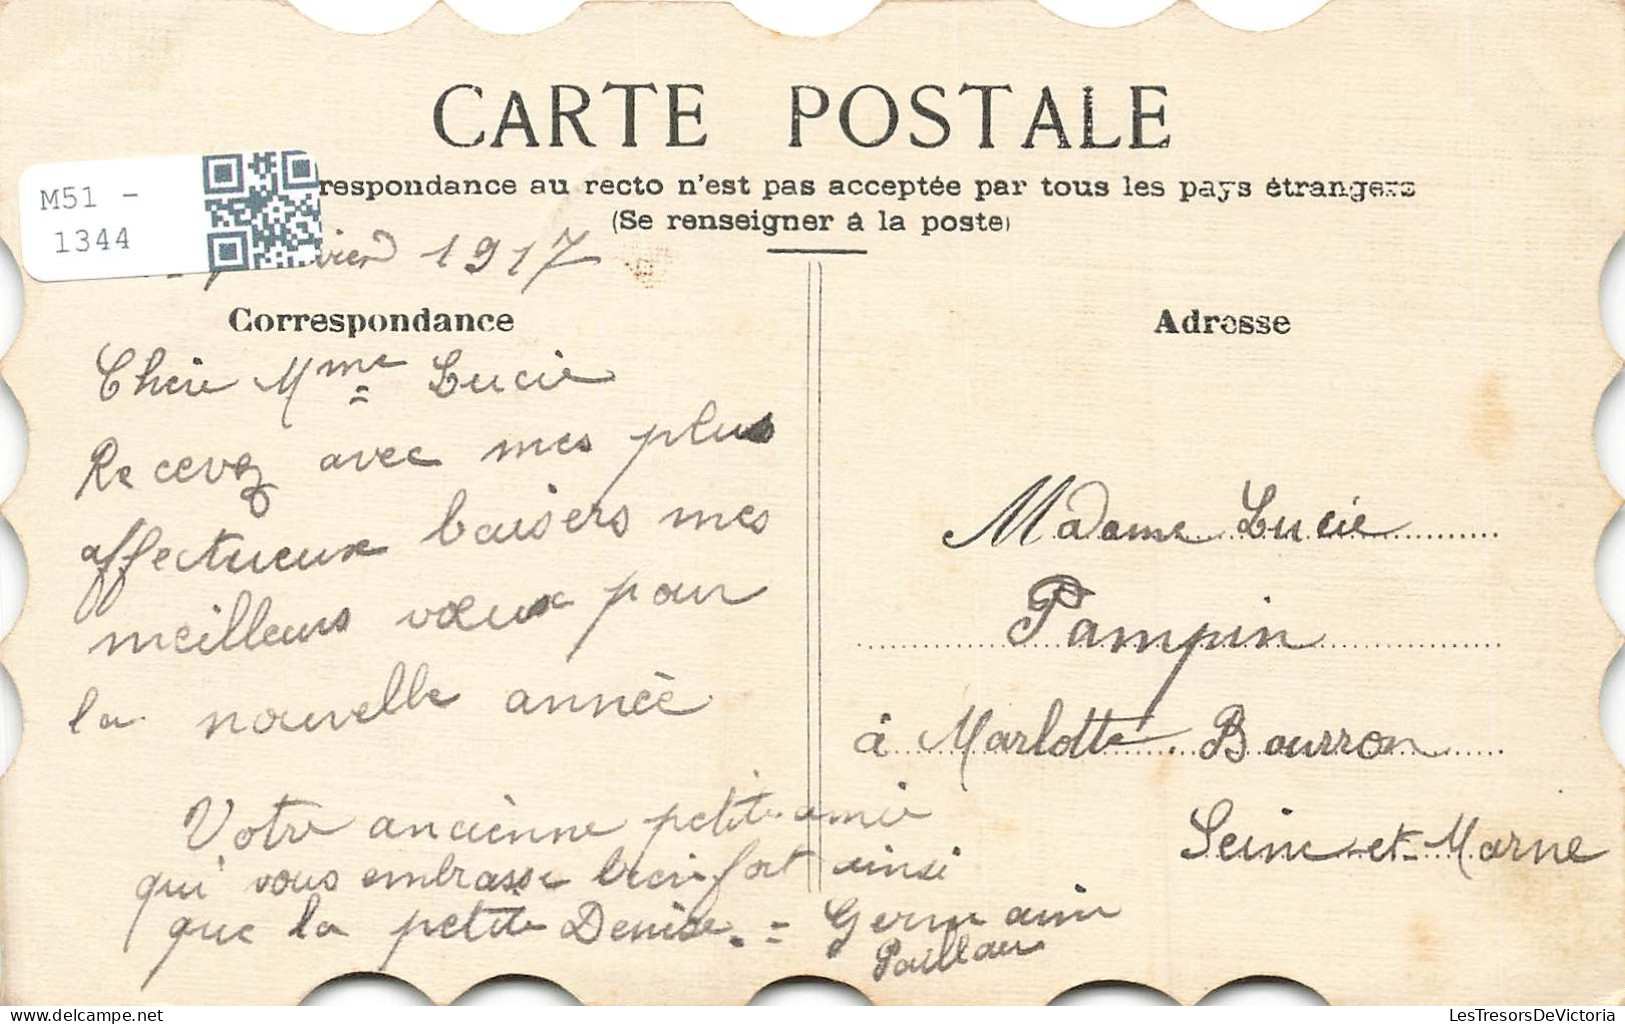 CARTE POSTALE
M51 -
1344
respondance au recto n'est pas acceptée par tous les pays étrangers
(Se renseigner à la poste)
1917
Correspondance
Adresse
Chère Mme Lucie
Recevez avec mes plus
affectueux baisers mes
meilleurs vœux pour
la nouvelle année
Votre ancienne petite amie
qui vous embrasse bien fort ainsi
que la petite Denise. = Germaine
Madame Lucie
Pampin
à Marlotte. Bourron
Seine-et-Marne
delcampe.net
LesTresorsDeVictoria